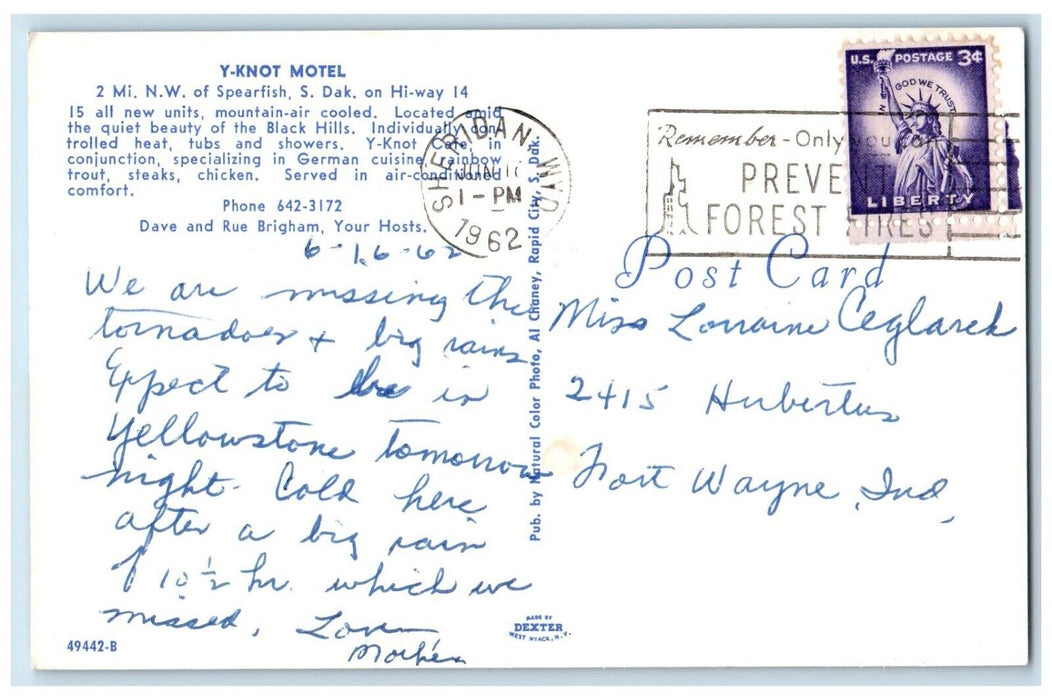 Y-KNOT MOTEL
2 Mi. N.W. of Spearfish, S. Dak. on Hi-way 14
15 all new units, mountain-air cooled. Located amid
the quiet beauty of the Black Hills. Individually con
trolled heat, tubs and showers. Y-Knot Cafe, in
conjunction, specializing in German cuisine, rainbow
trout, steaks, chicken. Served in air-conditioned
comfort.
Phone 642-3172
Dave and Rue Brigham, Your Hosts.
6-16-62
We are missing the
tornadoes + big rains
Expect to be in
Yellowstone tomorrow
night. Cold here
after a big rain
of 10 1/2 hr. which we
missed. Love
Mother
49442-B
SHERIDAN, WYO
JUN
1-PM
1962
Pub. by Natural Color Photo, Al Chaney, Rapid City, S. Dak.
MADE BY
DEXTER
WEST NYACK, N.Y.
Remember-Only you can
PREVENT
FOREST FIRES
U.S. POSTAGE 3¢
IN GOD WE TRUST
LIBERTY
Post Card
Miss Lorraine Ceglarek
2415 Hubertus
Fort Wayne, Ind,